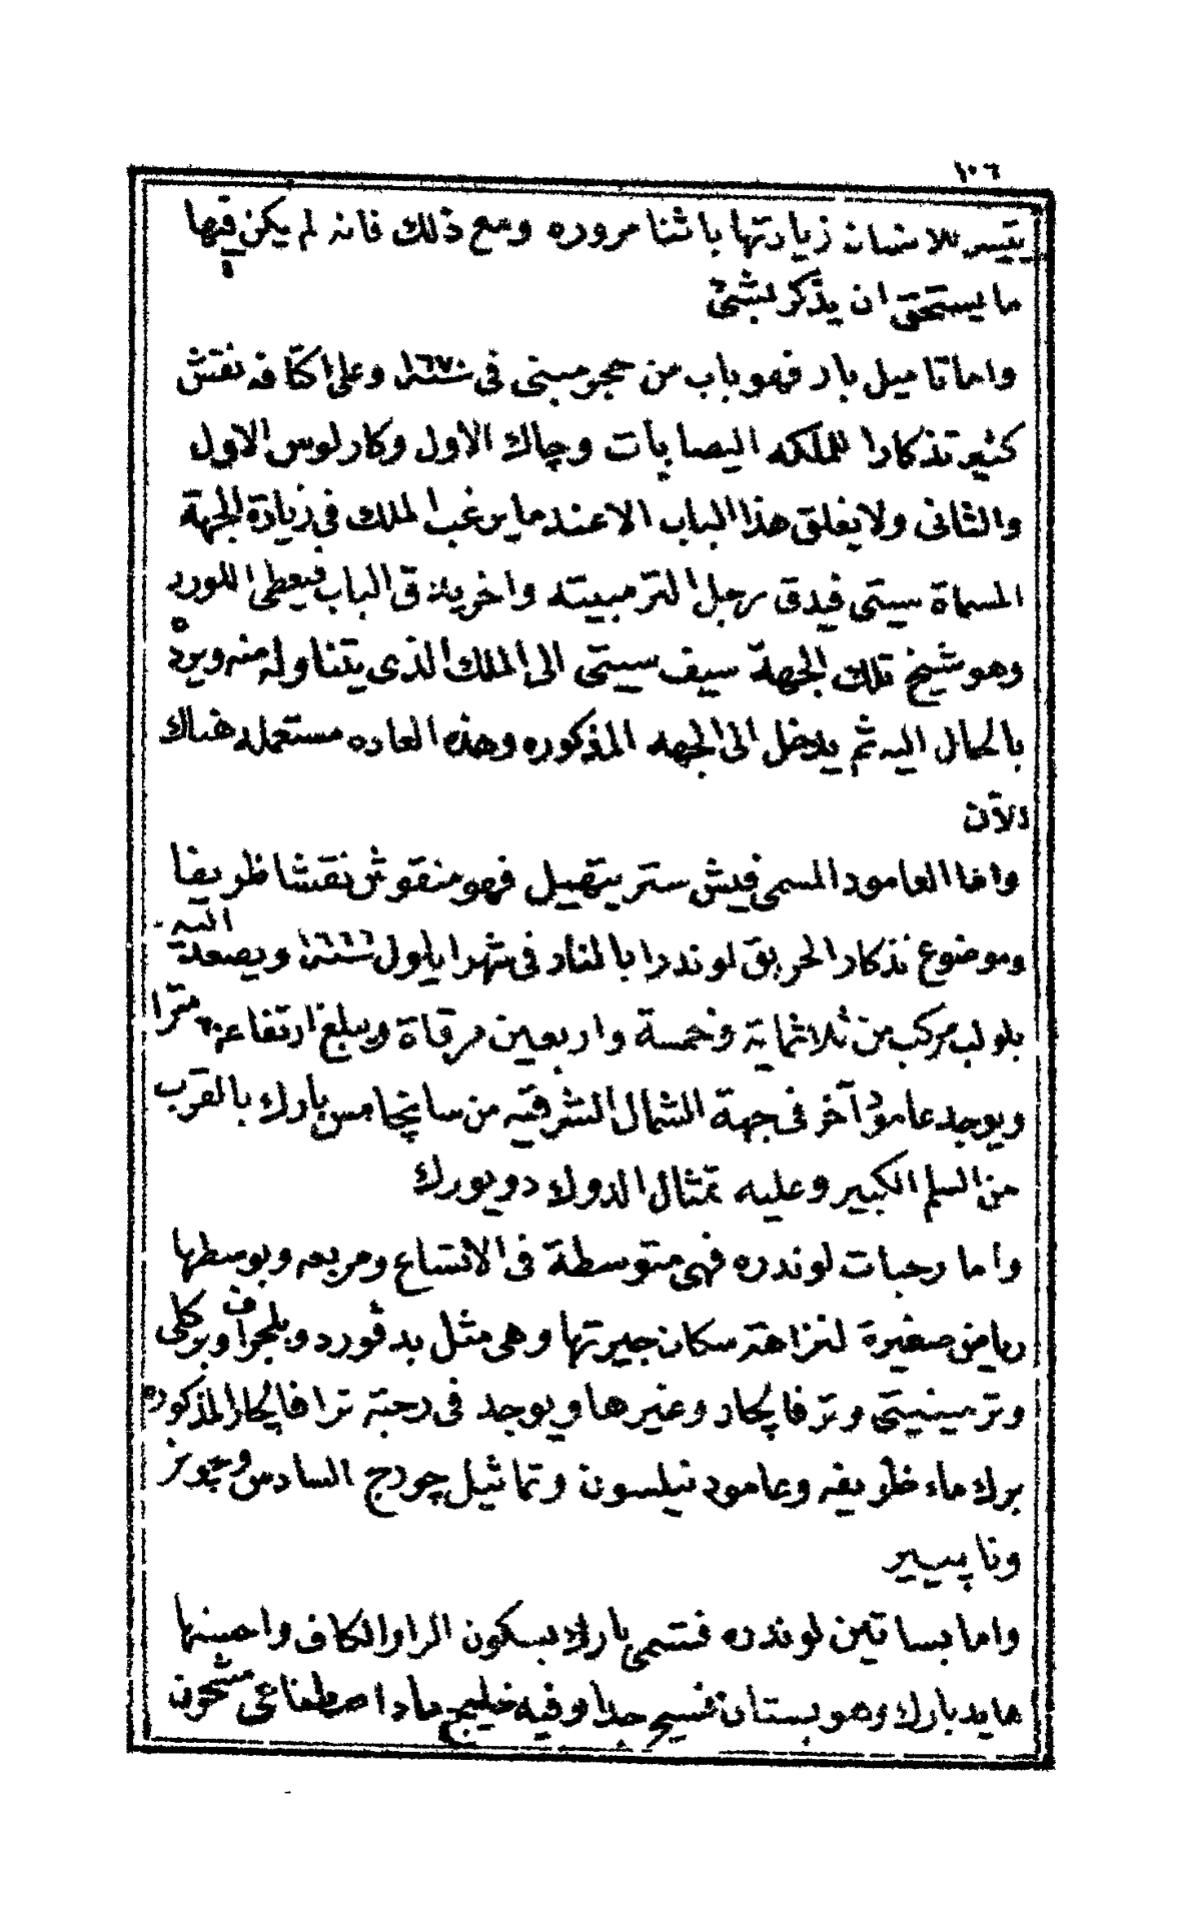 ١٠٦
يتيسر للانسان زيارتها باثنا مروره ومع ذلك فانه لم يكن فيها
ما يستحق ان يذكر بشئ
واما تاميل بار فهو باب من حجر مبنى فى سنة ١٦٧٠ وعلى اكتافه نقش
كثير تذكارا للملكه اليصابات وچاك الاول وكارلوس الاول
والثانى ولا يغلق هذا الباب الا عند ما يرغب الملك فى زيارة الجهة
المسماة سيتى فيدق رجل الترمبيته واخر يدق الباب فيعطى اللورد
وهو شيخ تلك الجهة سيف سيتى الى الملك الذى يتناوله منه ويرده
بالحال اليه ثم يدخل الى الجهه المذكوره وهذه العاده مستعمله هناك
الآن
واما العامود المسمى فيش ستريتهيل فهو منقوش نقشا ظريفا
وموضوع تذكار الحريق لوندرا بالنار فى شهر ايلول سنة ١٦٦٦ ويصعد اليه
بلولب مركب من ثلاثماية وخمسة واربعين مرقاة ويبلغ ارتفاعه ٦٠ مترا
ويوجد عامود آخر فى جهة الشمال الشرقيه من سانچامس بارك بالقرب
من السلم الكبير وعليه تمثال الدوك دويورك
واما رحبات لوندره فهى متوسطة فى الاتساع ومربعه وبوسطها
رياض صغيرة لنزاهة سكان جيرتها وهى مثل بدفورد وبلجراف وبركلى
وترمينيتى وترفالجار وغيرها ويوجد فى رحبة ترافالجار المذكوره
برك ماء ظريفه وعامود نيلسون وتماثيل چورج السادس وچونز
وناپيير
واما بساتين لوندره فتسمى بارك بسكون الرا والكاف واحسنها
هايد بارك وهو بستان فسيح جدا وفيه خليج ماء اصطناعى مشحون